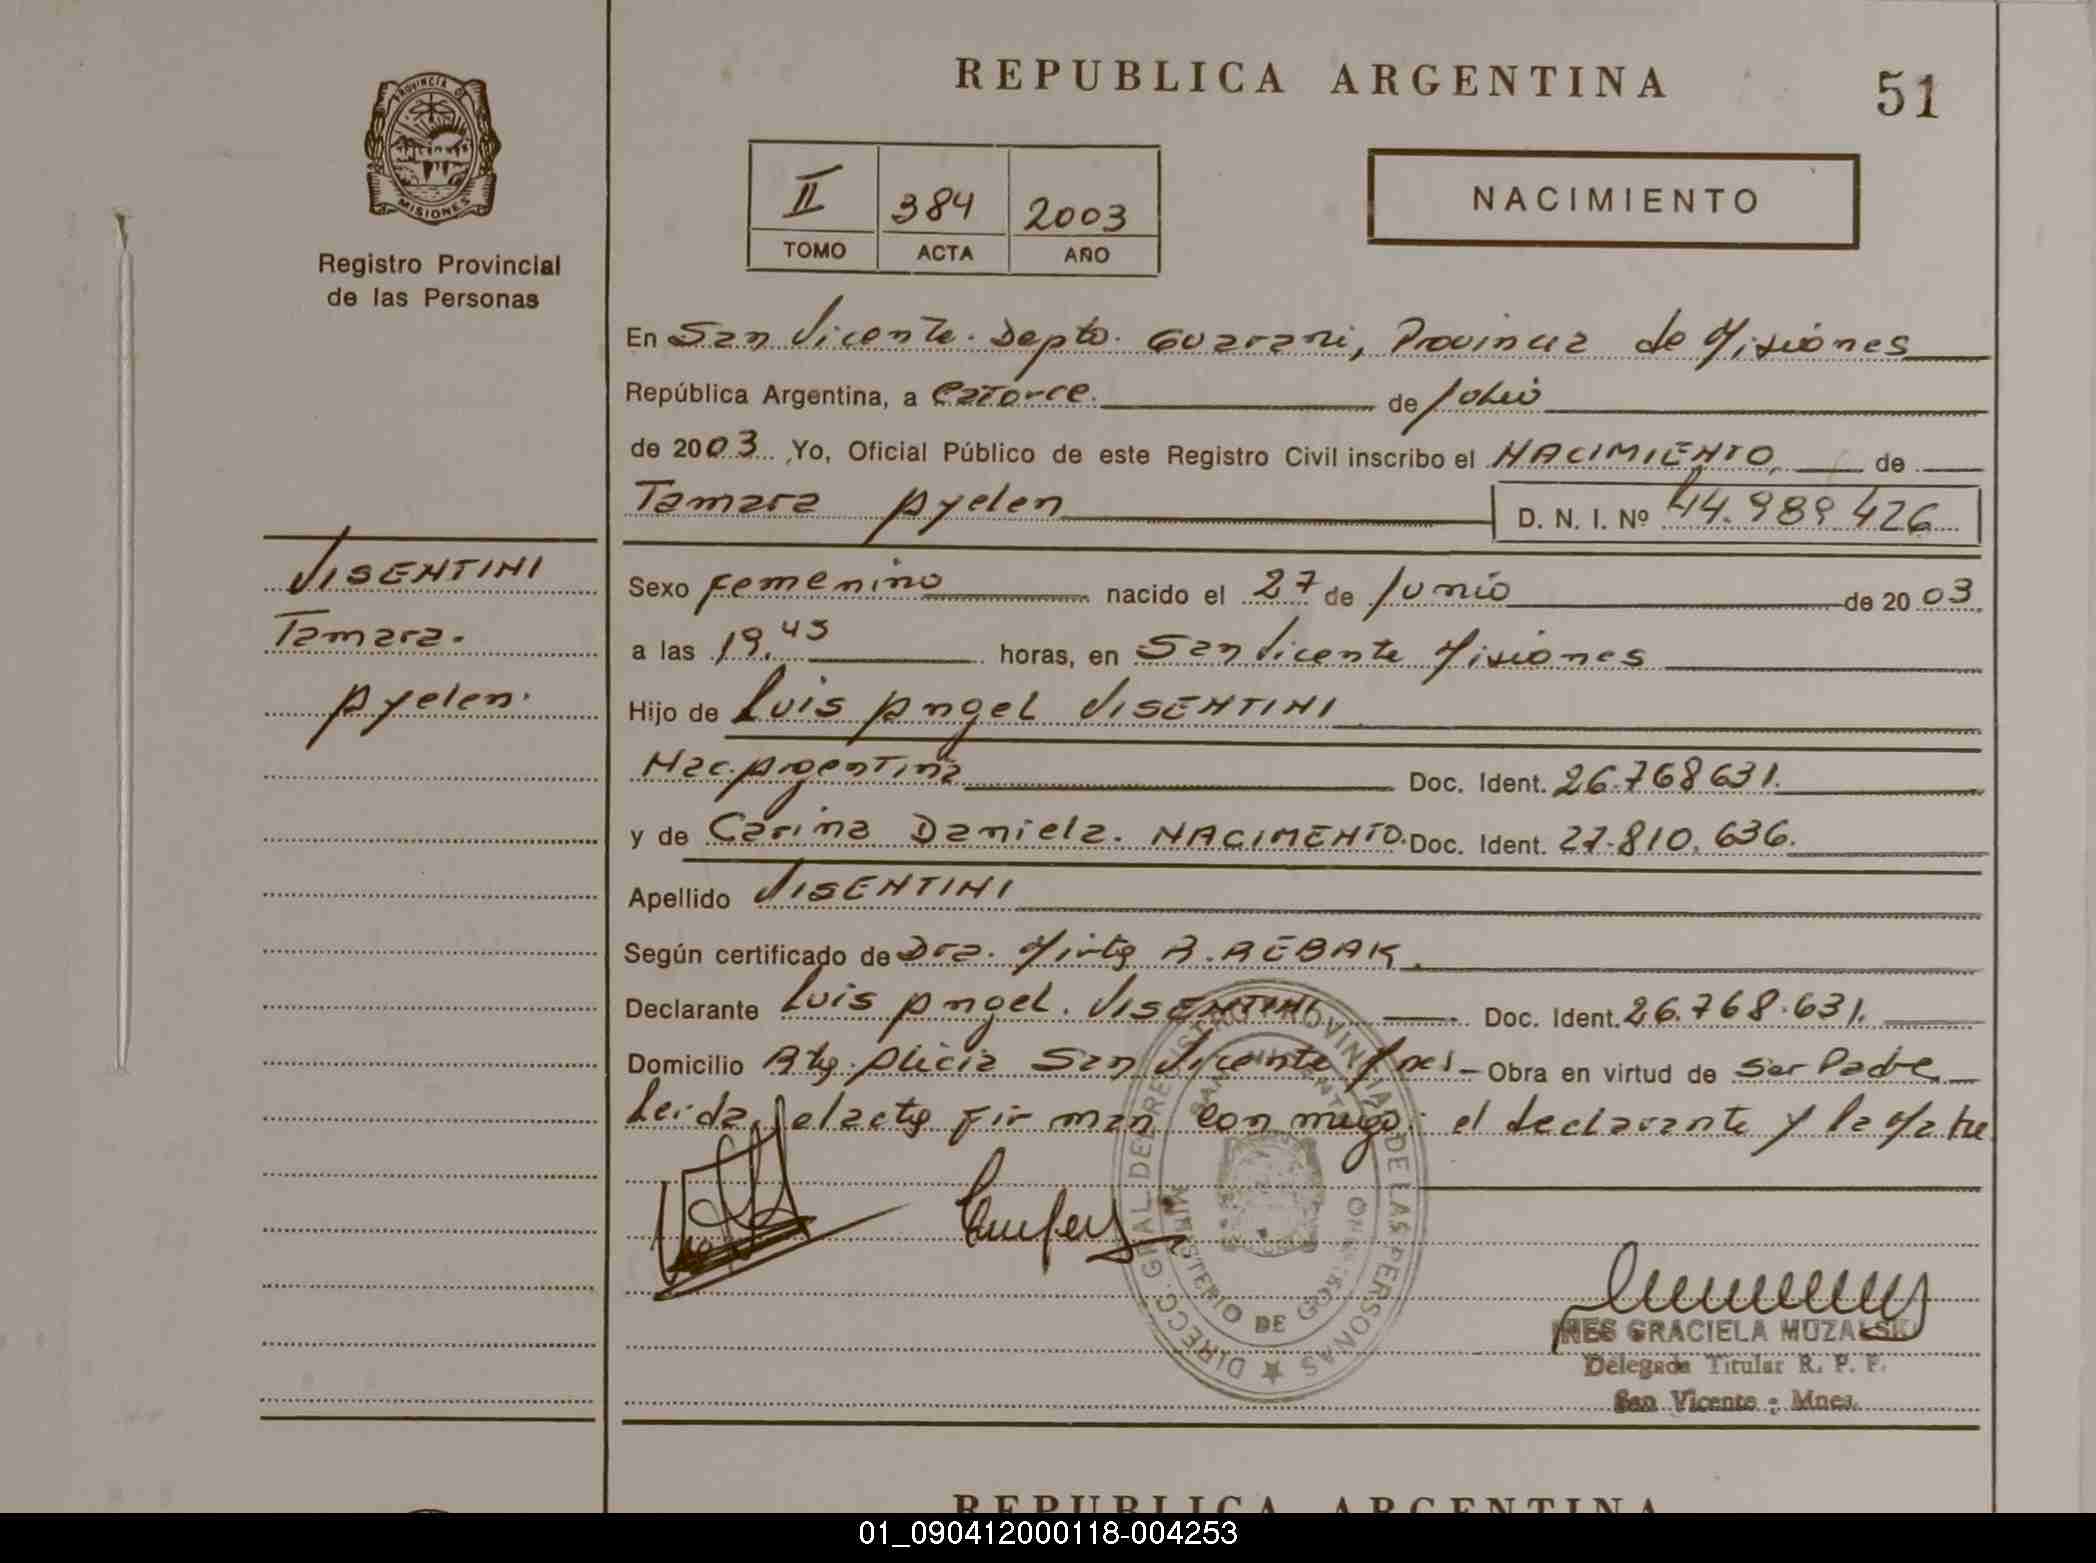 REPUBLICA ARGENTINA
51
PROVINCIA DE
MISIONES
Registro Provincial
de las Personas
II 384 2003
TOMO ACTA AÑO
NACIMIENTO
En San Vicente. Depto. Guarani, Provincia de Misiones
República Argentina, a Catorce. de Julio
de 2003 ,Yo, Oficial Público de este Registro Civil inscribo el NACIMIENTO, de
Tamara Ayelen D. N. I. Nº 44.989.426
VISENTINI
Tamara.
Ayelen.
Sexo femenino nacido el 27 de Junio de 2003
a las 19,45 horas, en San Vicente Misiones
Hijo de Luis Angel VISENTINI
Nac. Argentina Doc. Ident. 26.768631.
y de Carina Daniela. NACIMENTO. Doc. Ident. 27.810.636.
Apellido VISENTINI
Según certificado de Dra. Mirta R. REBAK.
Declarante Luis Angel. VISENTINI Doc. Ident. 26.768.631.
Domicilio Alicia San Vicente Mnes- Obra en virtud de Ser Padre
Leida el acta firman conmigo: el declarante y la Madre
DIRECC. GRAL DEL REGISTRO PROVINCIAL DE LAS PERSONAS
SAN VICENTE
MINISTERIO DE GOBIERNO
INES GRACIELA MUZALSKI
Delegada Titular R. P. P.
San Vicente - Mnes.
REPUBLICA ARGENTINA
01_090412000118-004253